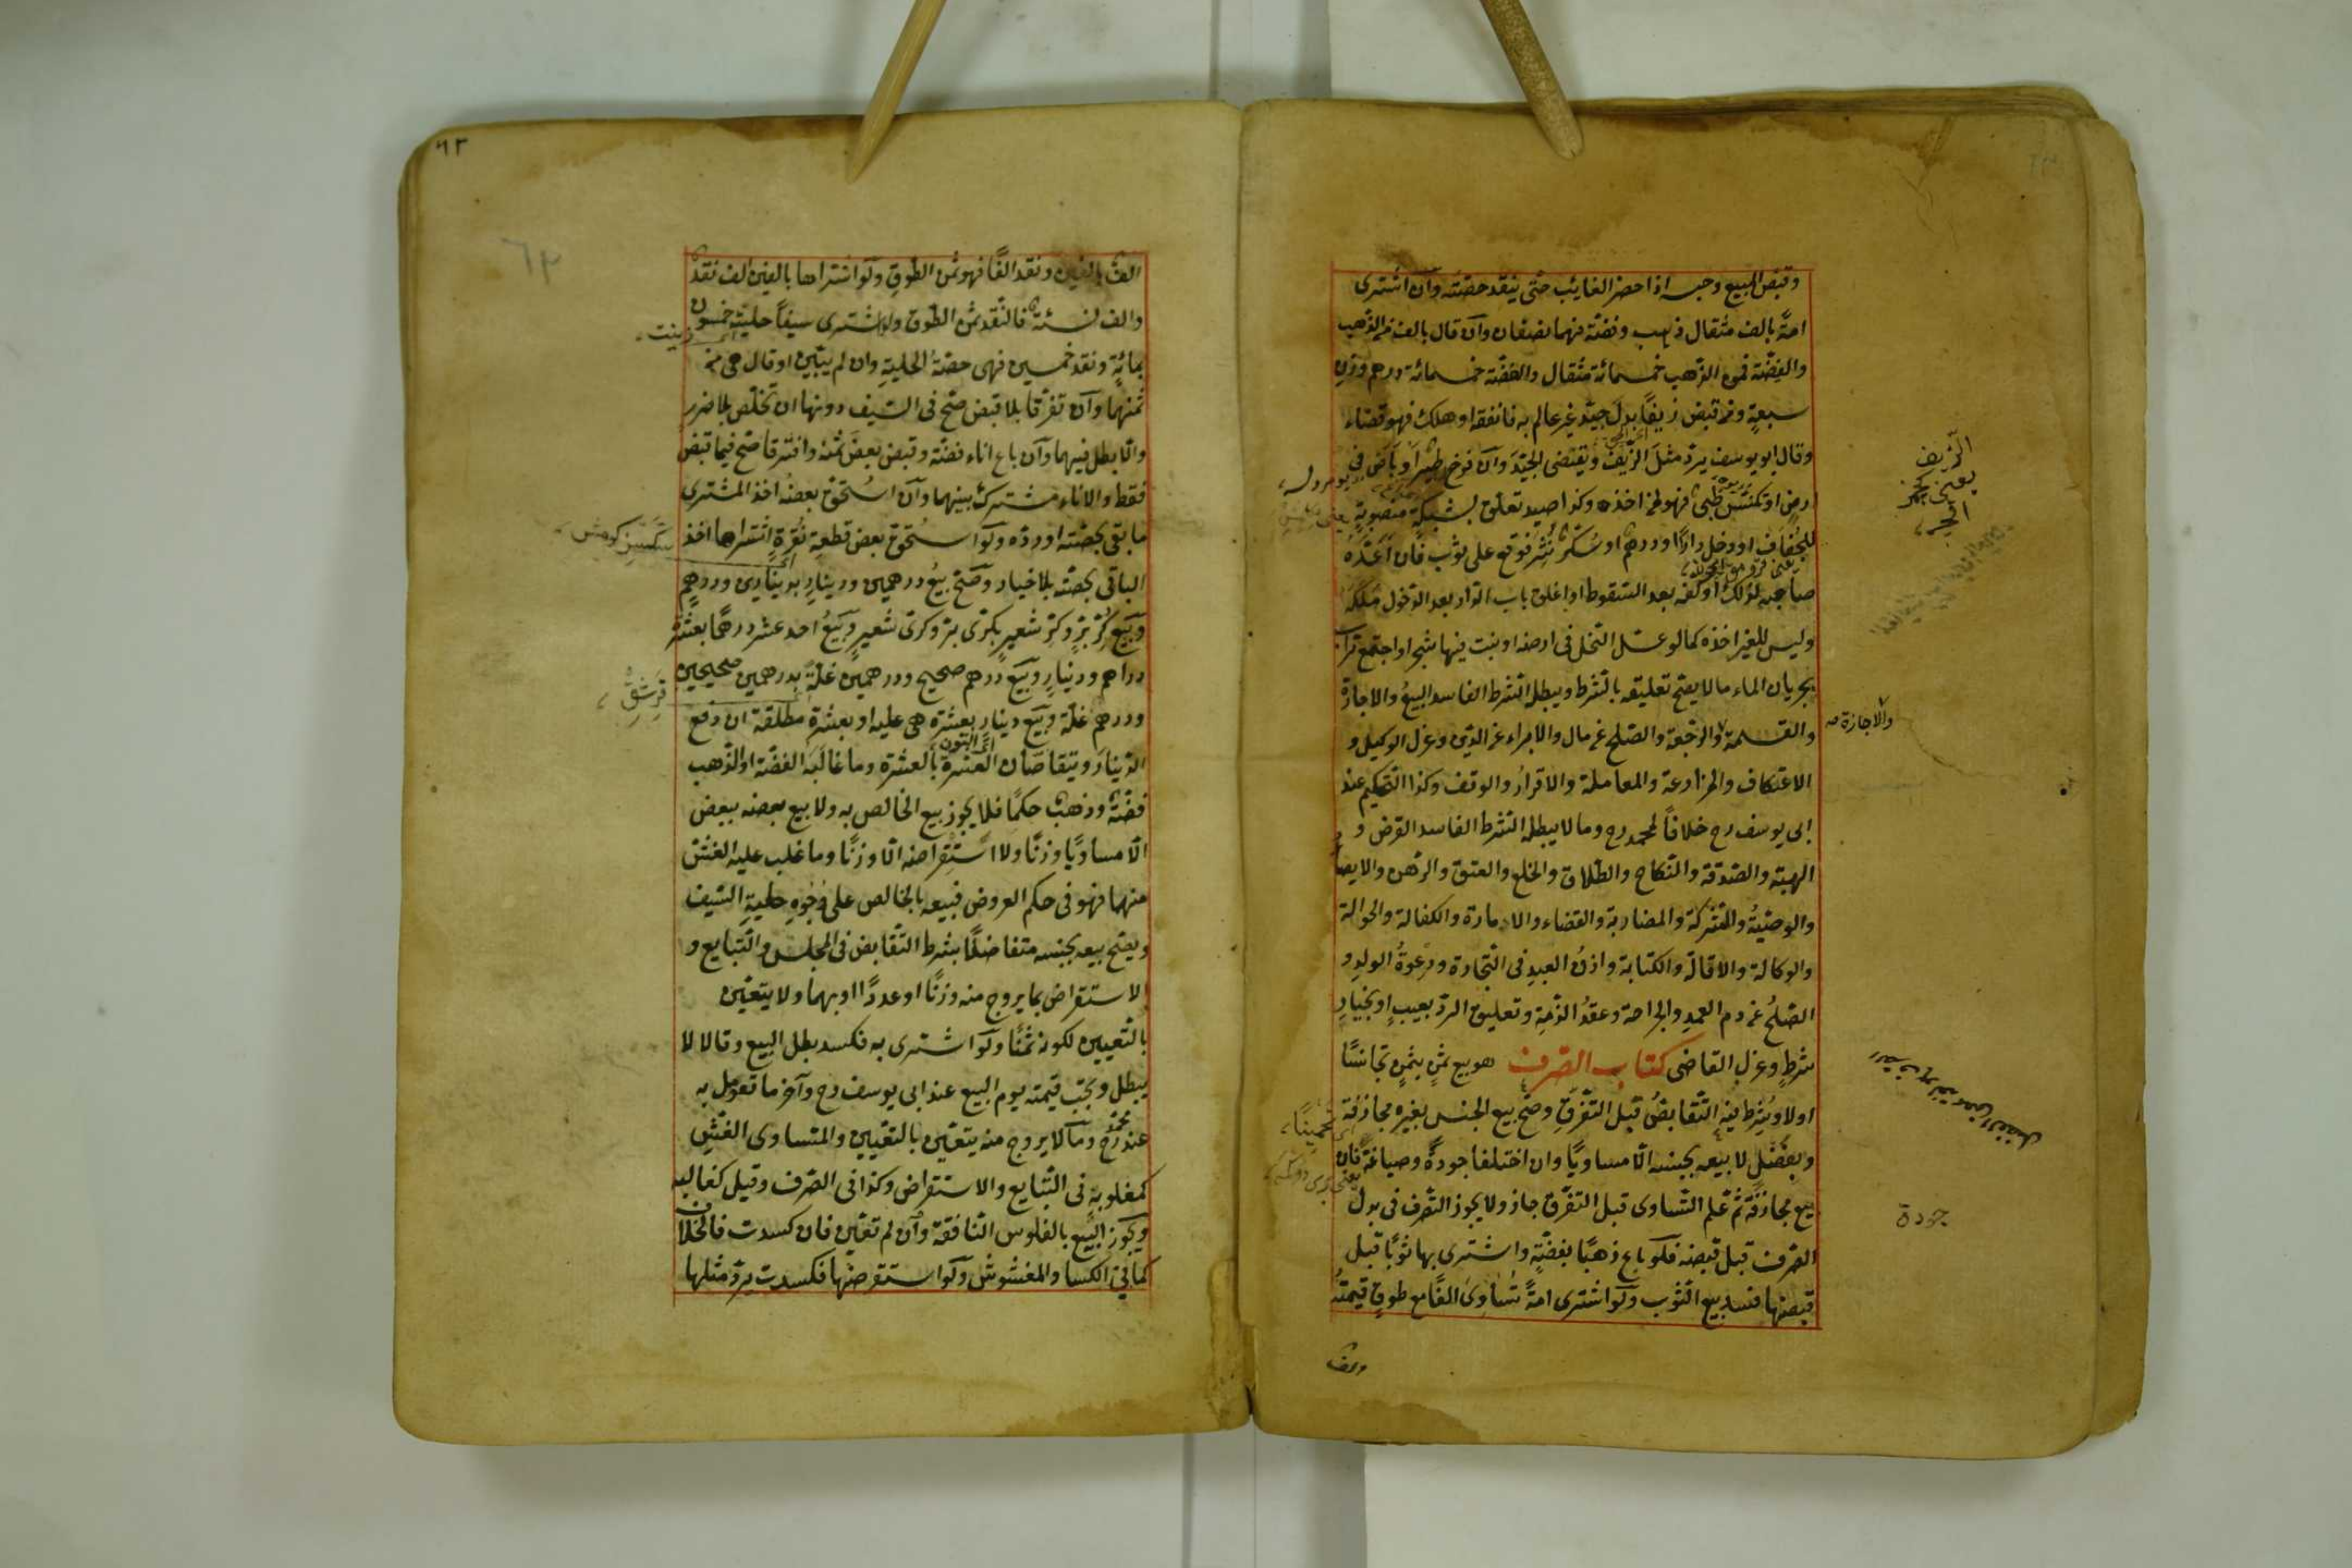 وقبض المبيع وحبسه اذا حضر الغايب حتى ينقد حصته وان اشترى
امة بالف مثقال ذهب وفضة فهما نصفان وان قال بالف من الذهب
والفضة فمن الذهب خمسمائة مثقال والفضة خمسمائة درهم وزن
سبعة ومن قبض زيفا بدل جيد غير عالم به فانفقه او هلك فهو قضاء
وقال ابو يوسف يرد مثل الزيف ويقتضى الجيد وان فرخ طير او باض فى
ارض او تكنس ظبى فهو لمن اخذه وكذا صيد تعلق بشبكة منصوبة
للجفاف او دخل دارا ودرهم او سكر نثر فوقع على ثوب فان اعده
صاحبه لذلك او كفه بعد السقوط او اغلق باب الدار بعد الدخول ملكه
وليس للغير اخذه كما لو عسل النحل فى ارضه او نبت فيها شجر او اجتمع تراب
بجريان الماء ما لا يصح تعليقه بالشرط ويبطل الشرط الفاسد البيع والاجارة
والقسمة والرجعة والصلح عن مال والابراء عن الدين وعزل الوكيل و
الاعتكاف والمزارعة والمعاملة والاقرار والوقف وكذا التحكيم عند
ابى يوسف رح خلافا لمحمد رح وما لا يبطله الشرط الفاسد القرض و
الهبة والصدقة والنكاح والطلاق والخلع والعتق والرهن والايصا
والوصية والشركة والمضاربة والقضاء والامارة والكفالة والحوالة
والوكالة والاقالة والكتابة واذن العبد فى التجارة ودعوة الولد و
الصلح عن دم العمد والجراحة وعقد الذمة وتعليق الرد بعيب او بخيار
شرط وعزل القاضى كتاب الصرف هو بيع ثمن بثمن تجانسا
اولا ويشرط فيه التقابض قبل التفرق وصح بيع الجنس بغيره مجازفة
وبفضل لا بيعه بجنسه الا مساويا وان اختلفا جودة وصياغة فان
بيع مجازفة ثم علم التساوى قبل التفرق جاز ولا يجوز التصرف فى بدل
الصرف قبل قبضه فلو باع ذهبا بفضة واشترى بها ثوبا قبل
قبضها فسد بيع الثوب ولو اشترى امة تساوى الفا مع طوق قيمته
الزيف
يعنى كجز
والاجازة
جودة
تخمينا
٦٣
الف بالفين ونقد الفا فهو ثمن الطوق ولو اشتراها بالفين الف نقد
والف نسئة فالنقد ثمن الطوق ولو اشترى سيفا حليته خمسون
بمائة ونقد خمسين فهى حصة الحلية وان لم يبين او قال هى من
ثمنهما وان تفرقا بلا قبض صح فى السيف دونها ان تخلص بلا ضرر
والا بطل فيهما وان باع اناء فضة وقبض بعض ثمنه وافترقا صح فيما قبض
فقط والاناء مشترك بينهما وان استحق بعضه اخذ المشترى
ما بقى بحصته او رده ولو استحق بعض قطعة نقرة اشتراها اخذ
الباقى بحصته بلا خيار وصح بيع درهمين ودينار بدينارين ودرهم
وبيع كر بر وكر شعير بكرى بر وكرى شعير وبيع احد عشر درهما بعشرة
دراهم ودينار وبيع درهم صحيح ودرهمين غلة بدرهمين صحيحين
ودرهم غلة وبيع دينار بعشرة هى عليه او بعشرة مطلقة ان دفع
الدينار ويتقاصان العشرة بالعشرة وما غالبه الفضة او الذهب
فضة وذهب حكما فلا يجوز بيع الخالص به ولا بيع بعضه ببعض
الا مساويا وزنا ولا استقراضه الا وزنا وما غلب عليه الغش
منهما فهو فى حكم العروض فبيعه بالخالص على وجوه حلية السيف
ويصح بيعه بجنسه متفاضلا بشرط التقابض فى المجلس والتبايع و
الاستقراض بما يروج منه وزنا او عددا او بهما ولا يتعين
بالتعيين لكونه ثمنا ولو اشترى به فكسد بطل البيع وقالا لا
يبطل وتجب قيمته يوم البيع عند ابى يوسف رح وآخر ما تعومل به
عند محمد رح وما لا يروج منه يتعين بالتعيين والمتساوى الغش
كمغلوبة فى التبايع والاستقراض وكذا فى الصرف وقيل كغالبه
ويجوز البيع بالفلوس النافقة وان لم تعين فان كسدت فالخلاف
كما فى الكساد المغشوش ولو استقرضها فكسدت يرد مثلها
زينت
٦٣